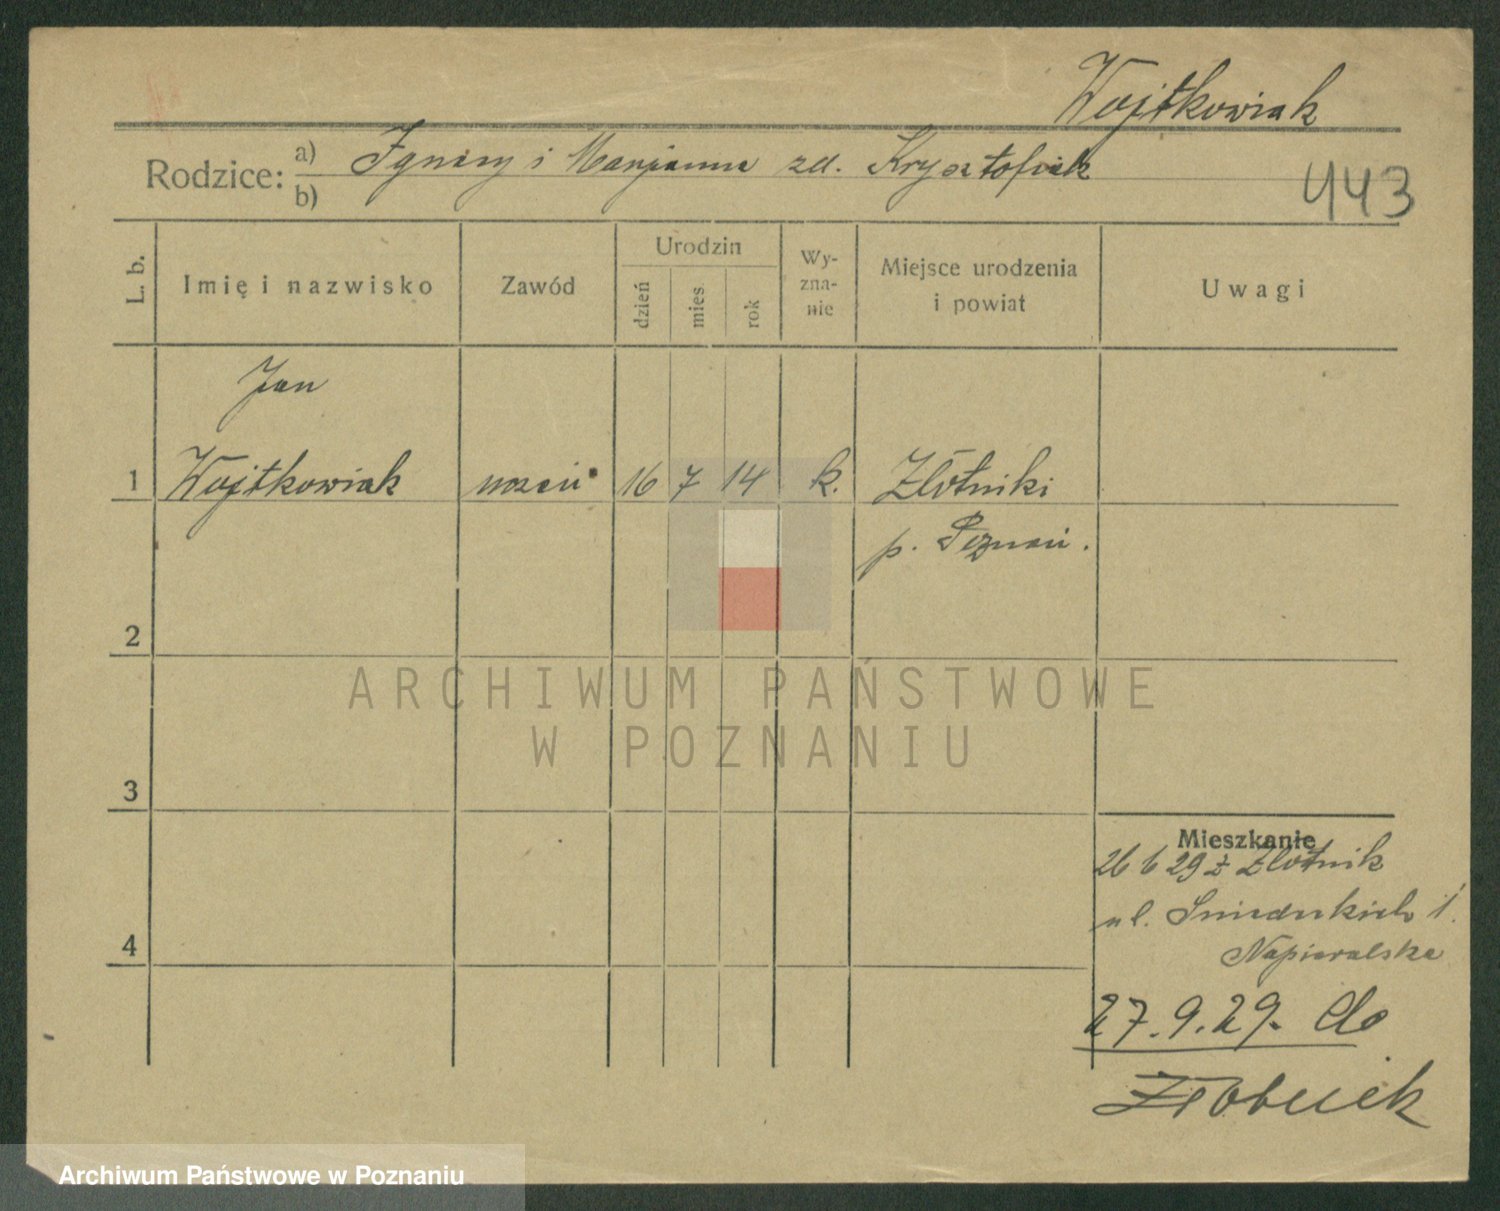 Wojtkowiak
Rodzice: a) Ignacy i Marjanna zd. Krysztofiak
b)
443
L. b.
Imię i nazwisko
Zawód
Urodzin
dzień
mies
rok
Wy-
zna-
nie
Miejsce urodzenia
i powiat
Uwagi
Jan
1 Wojtkowiak uczeń 16 7 14 k. Złotniki
p. Poznań.
2
ARCHIWUM PAŃSTWOWE
W POZNANIU
3
Mieszkanie
26 6 29 z Złotnik
ul. Śniadeckich 1.
Napieralska
4
27.9.29. do
Złotnik
Archiwum Państwowe w Poznaniu